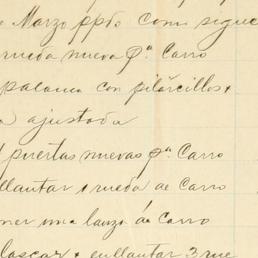 Marzo ppdo como sigue
rueda nueva pª. Carro
palanca con pilarcillos
ajustada
puertas nuevas pª Carro
llantar rueda de Carro
ner una lanza á Carro
enllantar 3 rue